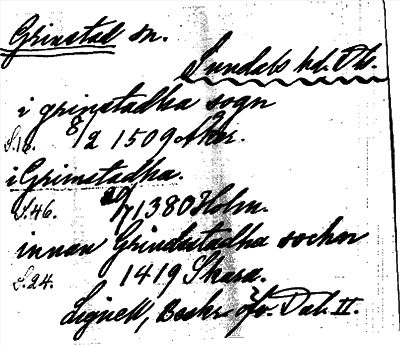 Grinstad sn.
Sundals hd. Ds.
i grinstadha sogn
S.18. 8/2 1509 Aker.
i Grimstadha.
S.46. 20/7 1380 Holm.
innan Grindestadha sochn
S.24. 1419 Skara.
Lignell, Beskr. öfv. Dal. II.